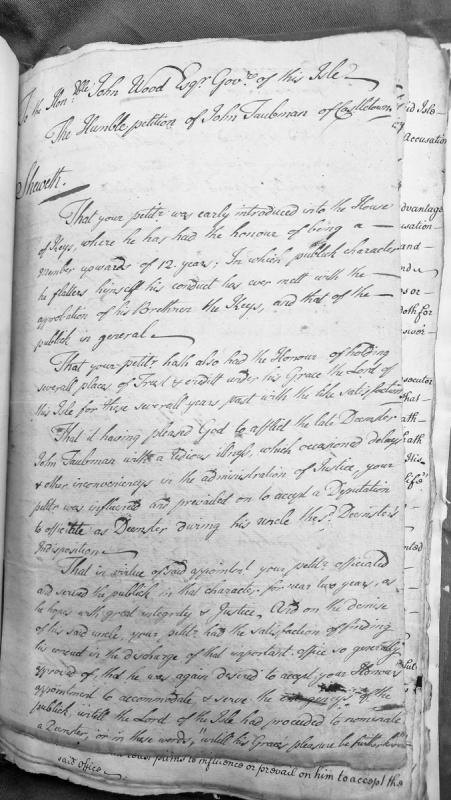 To the Hon:ble John Wood Esqr. Govr. of this Isle
The Humble petition of John Taubman of Castletown
Sheweth.
That your petitr. was early introduced into the House
of Keys, where he has had the honour of being a
member upwards of 12 years; In which publick character
he flatters himself his conduct has ever met with the
approbation of his Brethren the Keys, and that of the
publick in general
That your petitr. hath also had the Honour of holding
severall places of Trust & creditt under his Grace the Lord of
this Isle for these severall years past with the like satisfaction
That it having pleased God to afflict the late Deemster
John Taubman with a tedious illness, which occasioned delays
& other inconveniencys in the administration of Justice, your
petitr. was influenced and prevailed on to accept a Deputation
to officiate as Deemster during his uncle the sd. Deemster's
Indisposition
That in virtue of said appointmt. your petitr. officiated
and served the publick in that character for near two years, as
he hopes with great integrity & Justice, And on the demise
of his said uncle, your petitr. had the satisfaction of finding
his conduct in the discharge of that important office so generally
approved of, that he was again desired to accept your Honours
appointment to accommodate & serve the of the
publick, untill the Lord of the Isle had proceeded to nominate
a Deemster, or in these words, "untill his Grace's pleasure be further known"
pains to influence or prevail on him to accept the
said office
id Isle
Accusation
dvantage
usation
and
nd
s or
oth for
swor
osecutor
that
ath
ath
His
life
nted
Pub